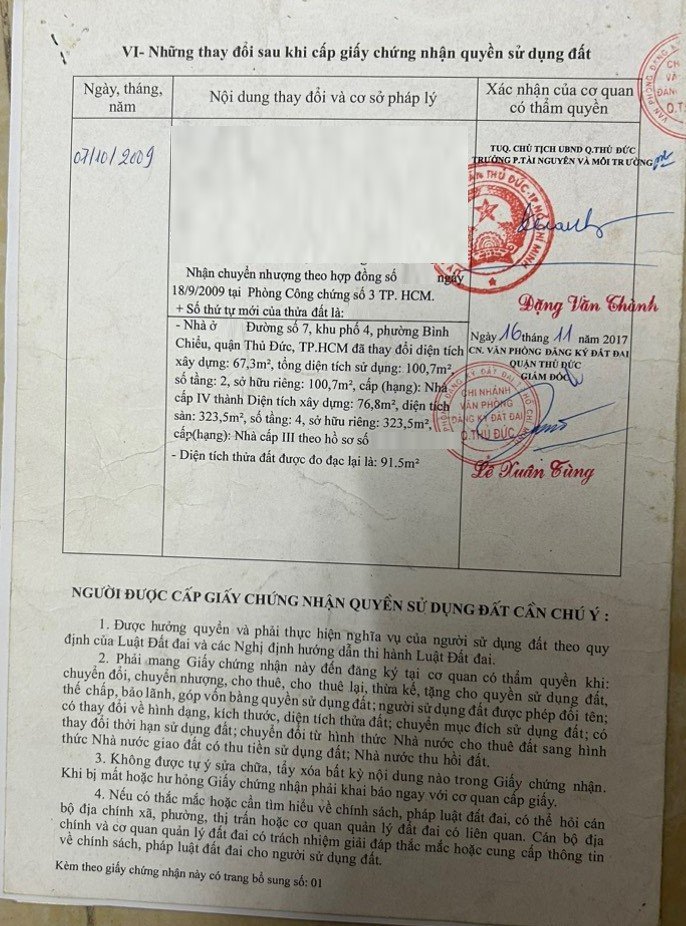 VI- Những thay đổi sau khi cấp giấy chứng nhận quyền sử dụng đất
Ngày, tháng,
năm
Nội dung thay đổi và cơ sở pháp lý
Xác nhận của cơ quan
có thẩm quyền
07/10/2009
Nhận chuyển nhượng theo hợp đồng số ngày
18/9/2009 tại Phòng Công chứng số 3 TP. HCM.
+ Số thứ tự mới của thửa đất là:
TUQ. CHỦ TỊCH UBND Q.THỦ ĐỨC
TRƯỞNG P.TÀI NGUYÊN VÀ MÔI TRƯỜNG
THỦ ĐỨC-TP.HỒ CHÍ MINH
Đặng Văn Thành
- Nhà ở Đường số 7, khu phố 4, phường Bình
Chiểu, quận Thủ Đức, TP.HCM đã thay đổi diện tích
xây dựng: 67,3m², tổng diện tích sử dụng: 100,7m²,
số tầng: 2, sở hữu riêng: 100,7m², cấp (hạng): Nhà
cấp IV thành Diện tích xây dựng: 76,8m², diện tích
sàn: 323,5m², số tầng: 4, sở hữu riêng: 323,5m²,
cấp(hạng): Nhà cấp III theo hồ sơ số
- Diện tích thửa đất được đo đạc lại là: 91.5m²
Ngày 16 tháng 11 năm 2017
CN. VĂN PHÒNG ĐĂNG KÝ ĐẤT ĐAI
QUẬN THỦ ĐỨC
GIÁM ĐỐC
CHI NHÁNH
VĂN PHÒNG
ĐĂNG KÝ ĐẤT ĐAI
Q.THỦ ĐỨC
Lê Xuân Tùng
NGƯỜI ĐƯỢC CẤP GIẤY CHỨNG NHẬN QUYỀN SỬ DỤNG ĐẤT CẦN CHÚ Ý :
1. Được hưởng quyền và phải thực hiện nghĩa vụ của người sử dụng đất theo quy
định của Luật Đất đai và các Nghị định hướng dẫn thi hành Luật Đất đai.
2. Phải mang Giấy chứng nhận này đến đăng ký tại cơ quan có thẩm quyền khi:
chuyển đổi, chuyển nhượng, cho thuê, cho thuê lại, thừa kế, tặng cho quyền sử dụng đất,
thế chấp, bảo lãnh, góp vốn bằng quyền sử dụng đất; người sử dụng đất được phép đổi tên;
có thay đổi về hình dạng, kích thước, diện tích thửa đất; chuyển mục đích sử dụng đất; có
thay đổi thời hạn sử dụng đất; chuyển đổi từ hình thức Nhà nước cho thuê đất sang hình
thức Nhà nước giao đất có thu tiền sử dụng đất; Nhà nước thu hồi đất.
3. Không được tự ý sửa chữa, tẩy xóa bất kỳ nội dung nào trong Giấy chứng nhận.
Khi bị mất hoặc hư hỏng Giấy chứng nhận phải khai báo ngay với cơ quan cấp giấy.
4. Nếu có thắc mắc hoặc cần tìm hiểu về chính sách, pháp luật đất đai, có thể hỏi cán
bộ địa chính xã, phường, thị trấn hoặc cơ quan quản lý đất đai có liên quan. Cán bộ địa
chính và cơ quan quản lý đất đai có trách nhiệm giải đáp thắc mắc hoặc cung cấp thông tin
về chính sách, pháp luật đất đai cho người sử dụng đất.
Kèm theo giấy chứng nhận này có trang bổ sung số: 01